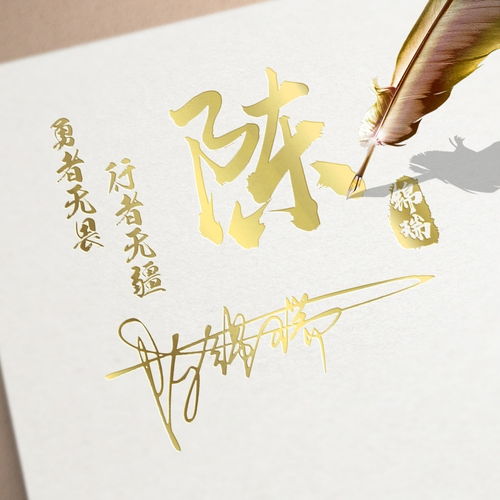 勇者无畏
行者无疆
陈
锦瑞